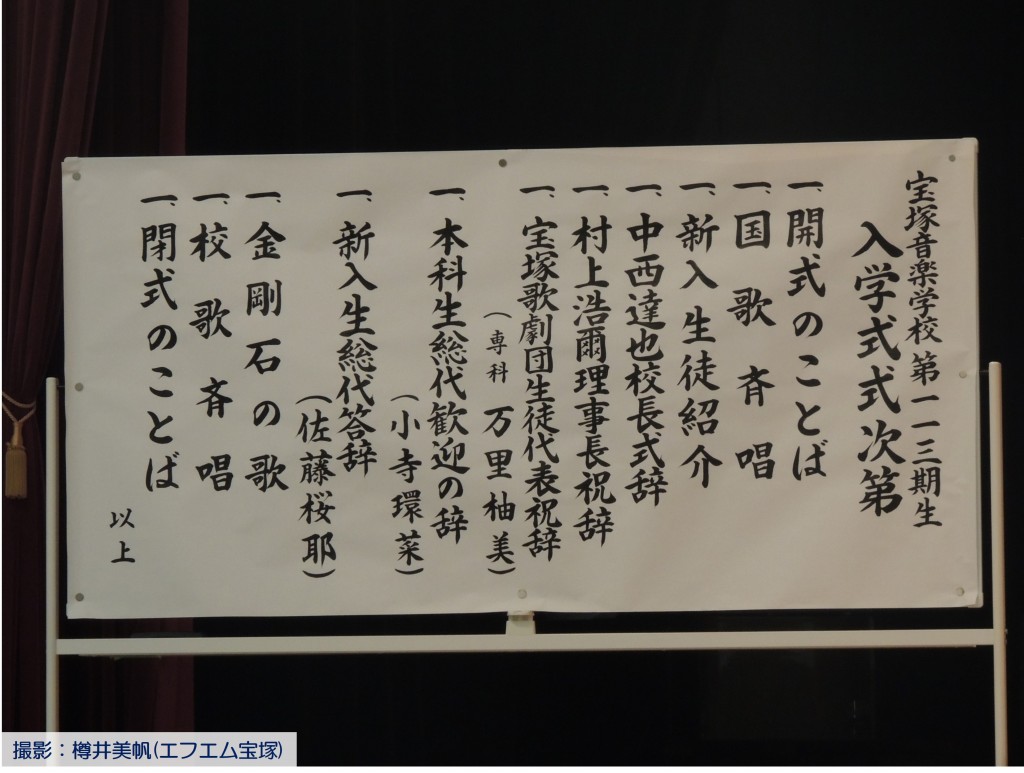 宝塚音楽学校 第一一三期生
入学式式次第
一、開式のことば
一、国歌斉唱
一、新入生徒紹介
一、中西達也校長式辞
一、村上浩爾理事長祝辞
一、宝塚歌劇団生徒代表祝辞
(専科 万里柚美)
一、本科生総代歓迎の辞
(小寺環菜)
一、新入生総代答辞
(佐藤桜耶)
一、金剛石の歌
一、校歌斉唱
一、閉式のことば
以上
撮影：樽井美帆(エフエム宝塚)